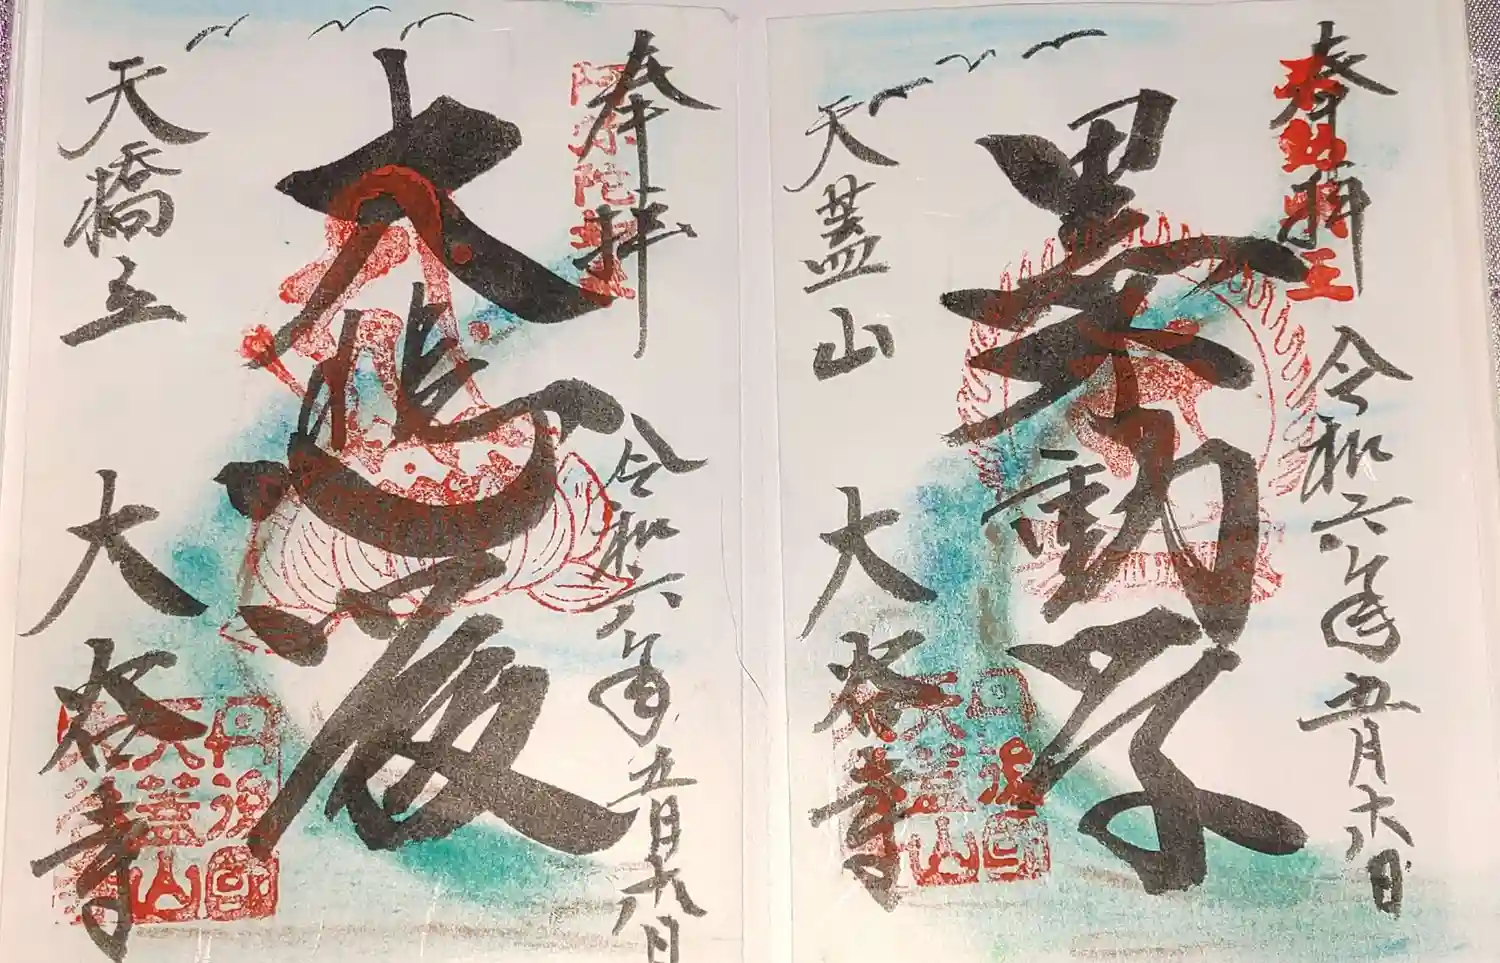 奉拝
令和六年五月十八日
不動明王
黒不動尊
天蓋山
大谷寺
丹後国
天蓋山
奉拝
令和六年五月十八日
大悲殿
天橋立
大谷寺
丹後国
天蓋山